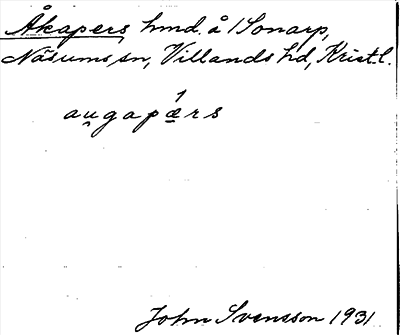 Åkapers hmd. å 1 Sonarp,
Näsums, sn, Villands hd, Krist.l.
au̯gapǽ̱rs
John Svensson 1931